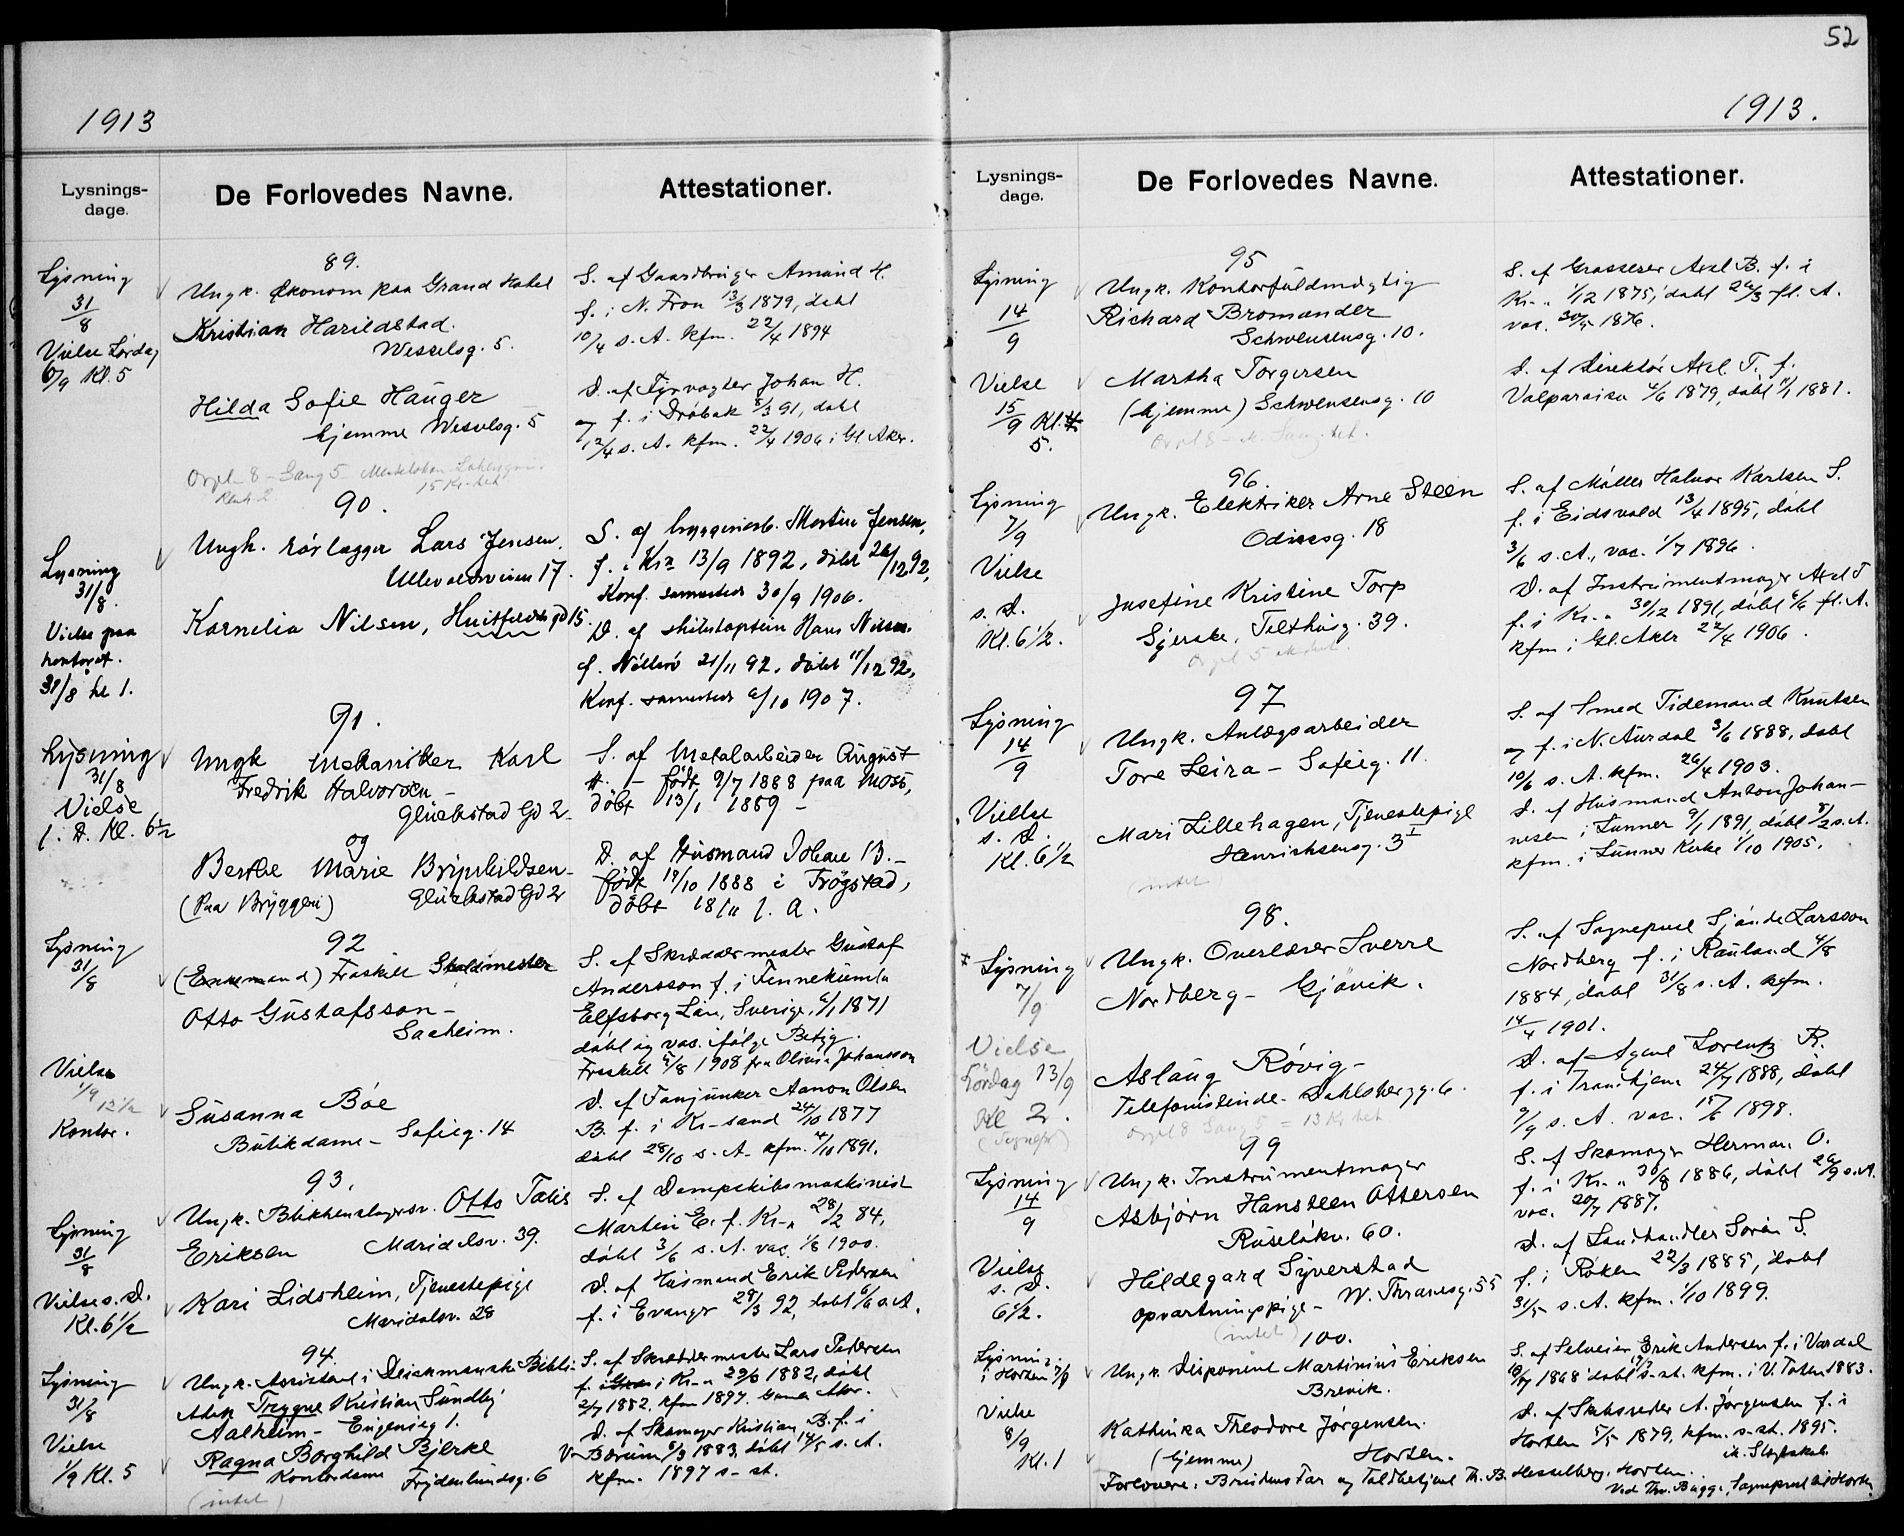 52
1913
Lysnings-
dage.
De Forlovedes Navne.
Attestationer.
Lysning
31/8
Vielse Lørdag
6/9 Kl. 5
89.
Ungk. Økonom paa Grand Hotel
Kristian Harildstad.
Wesselsg. 5.
Hilda Sofie Hauger
hjemme Wesselsg. 5
S. af Gaardbruger Amund H.
f. i N. Fron 13/3 1879, døbt
10/4 s. A. kfm. 22/4 1894
D. af Fyrvogter Johan H.
f. i Drøbak 8/3 91, døbt
12/4 s. A. kfm. 22/4 1906 i Gl. Aker.
Lysning
31/8.
Vielse paa
kontoret.
31/8 kl 1.
90.
Ungk. rørlægger Lars Jensen.
Ullevoldsveien 17.
Kornelia Nilsen, Huitfeldts gd 15.
S. af bryggeriarb. Martin Jensen,
f. i Kra 13/9 1892, døbt 26/12 92,
Konf. sammesteds 30/9 1906.
D. af skibskaptein Hans Nilsen
f. Nøtterø 21/11 92, døbt 11/12 92,
Konf. sammesteds 6/10 1907.
Lysning
31/8
Vielse
s. D. Kl. 6½
91.
Ungk Mekaniker Karl
Fredrik Halvorsen -
Glückstad Gd 2
og
Berthe Marie Brynhildsen -
(Paa Bryggeri) Glückstad Gd 2
S. af Metalarbeider August
H. - født 9/7 1888 paa Moss,
døbt 13/1 1889 -
D. af Husmand Johan B. -
født 19/10 1888 i Trøgstad,
døbt 18/11 s. A.
Lysning
31/8
Vielse
1/9 12½
Kontor.
92
(Enkemand) Fraskilt
Otto Gustafsson -
Saaheim.
Susanna Bøe
Butikdame - Sofieg. 14
S. af Skræddermester Gustaf
Andersson f. i Finnekumla
Elfsborg Län, Sverige, 6/1 1871
døbt og vac. ifølge Betyg.
Fraskilt 5/8 1908 fra Olivia Johansson
D. af Fanjunker Aanon Olsen
B. f. i Kr-sand 24/10 1877
døbt 28/10 s. A. kfm. 4/10 1891.
Lysning
31/8
Vielse s. D.
Kl. 6½
93.
Ungk. Blikkenslagersv. Otto
Eriksen Maridalsv. 39.
Kari Lidsheim, Tjenestepige
Maridalsv. 28
S. af Dampskibsmaskinist
Martin E. f. Kr-a 28/2 84,
døbt 3/6 s. A. vac. 1/8 1900.
D. af Husmand Erik Pedersen
f. i Evanger 28/3 92, døbt 6/6 s. A.
Lysning
31/8
Vielse
1/9 Kl. 5
94.
Ungk. Assistent i Deichmanske Bibli.
Trygve Kristian Sundby
Aalheim - Eugeniag 1.
Ragna Borghild Bjerke
Kontordame Frydenlundsg. 6
(intet)
S. af Skræddermester Lars Pedersen
f. i Kr-a 29/6 1882, døbt
2/7 1882. kfm 1897. Gamle Aker.
D. af Skomager Kristian B. f. i
V-Bærum 6/3 1883, døbt 14/5 s. A.
kfm. 1897 s-st.
1913.
Lysnings-
dage.
De Forlovedes Navne.
Attestationer.
Lysning
14/9
Vielse
15/9 Kl.
5.
95
Ungk. Kontorfuldmægtig
Richard Bromander
Schwensensg. 10.
Martha Torgersen
(hjemme) Schwensensg. 10
S. af Grosserer Axel B. f. i
Kr-a 1/12 1875, døbt 26/3 fl. A.
vac. 30/5 1876.
D. af Direktør Axel T. f.
Valparaiso 4/6 1879, døbt 1/1 1881.
Lysning
7/9
Vielse
s. D.
Kl. 6½.
96.
Ungk. Elektriker Arne Steen
Odinsg. 18
Josefine Kristine Torp
Syerske, Tilthusg. 39.
S. af Møller Halvor Karlsen S.
f. i Eidsvold 13/4 1895, døbt
3/6 s. A., vac. 1/7 1896.
D. af Instrumentmager Axel T
f. i Kr-a 30/12 1891, døbt 6/6 fl. A.
kfm. i Gl. Aker 22/4 1906.
Lysning
14/9
Vielse
s. D.
Kl. 6½
97
Ungk. Anlægsarbeider
Tore Leira - Sofieg. 11.
Mari Lillehagen, Tjenestepige
Henrichsensg. 3 I
(intet)
S. af Smed Tidemand Knutsen
f. i N. Aurdal 3/6 1888, døbt
10/6 s. A. kfm. 26/4 1903.
D. af Husmand Anton Johan-
nesen i Lunner 9/1 1891, døbt 8/2 s. A.
kfm. i Lunner Kirke 1/10 1905.
Lysning
7/9
Vielse
Lørdag 13/9
Kl 2.
(Sognepr)
98.
Ungk. Overlærer Sverre
Nordberg - Gjøvik.
Aslaug Røvig -
Telefonistinde - Dahlsbergg. 6.
S. af Sogneprest Sjønde Larsson
Nordberg f. i Rauland 4/8
1884, døbt 31/8 s. A. kfm.
14/4 1901.
D. af Agent Lorentz R.
f. i Trondhjem 24/7 1888, døbt
9/9 s. A. vac. 15/6 1898.
Lysning
14/9
Vielse
s. D.
6½.
99
Ungk. Instrumentmager
Asbjørn Hansteen Ottersen
Ruseløkv. 60.
Hildegard Syverstad
Opvartningspige - W. Thranesg. 55
(intet)
S. af Skomager Herman O.
f. i Kr-a 30/8 1886, døbt 26/9 s. A.
vac. 20/7 1887.
D. af Landhandler Søren S.
f. i Røken 22/3 1885, døbt
31/5 s. A. kfm. 1/10 1899.
Lysning
i Horten 7/9
Vielse
8/9
Kl. 1
100.
Ungk. Disponent Martinius Eriksen
Brevik.
Kathinka Theodora Jørgensen.
(hjemme) Horten.
S. af Selveier Erik Andersen f. i Vardal
1868 døbt s-st. kfm. i V. Toten 1883.
D. af Skibsreder A. Jørgensen f. i
Horten 5/5 1879, kfm. s-st. 1895.
ik. Slegtskab.
Forlovere: Brudens Far og Toldbetjent Th. B. Hesselberg, Horten.
Ved Thv. Bugge, Sogneprest til Horten